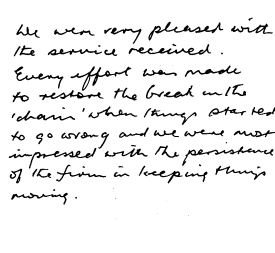 We were very pleased with
the service received.
Every effort was made
to restore the break in the
'chain' when things started
to go wrong and we were most
impressed with the persistence
of the firm in keeping things
moving.